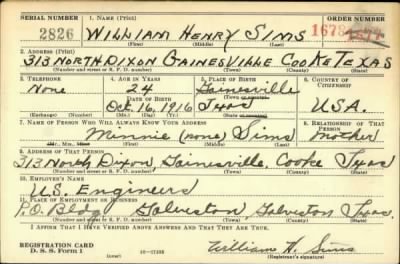 SERIAL NUMBER 1. NAME (Print) ORDER NUMBER
2826 WILLIAM HENRY SIMS 1678
(First) (Middle) (Last)
2. ADDRESS (Print)
313 NORTH DIXON GAINESVILLE COOKE TEXAS
(Number and street or R. F. D. number) (Town) (County) (State)
3. TELEPHONE 4. AGE IN YEARS 5. PLACE OF BIRTH 6. COUNTRY OF CITIZENSHIP
None 24 Gainesville
DATE OF BIRTH (Town or county)
Oct. 16, 1916 Texas U.S.A.
(Exchange) (Number) (Mo.) (Day) (Yr.) (State or country)
7. NAME OF PERSON WHO WILL ALWAYS KNOW YOUR ADDRESS 8. RELATIONSHIP OF THAT PERSON
Minnie (none) Sims mother
(Mr., Mrs., Miss) (First) (Middle) (Last)
9. ADDRESS OF THAT PERSON
313 North Dixon, Gainesville, Cooke Texas
(Number and street or R. F. D. number) (Town) (County) (State)
10. EMPLOYER'S NAME
U.S. Engineers
11. PLACE OF EMPLOYMENT OR BUSINESS
P.O. Bldg Galveston, Galveston Texas.
(Number and street or R. F. D. number) (Town) (County) (State)
I AFFIRM THAT I HAVE VERIFIED ABOVE ANSWERS AND THAT THEY ARE TRUE.
REGISTRATION CARD
D. S. S. Form 1 William H. Sims
(Registrant's signature)